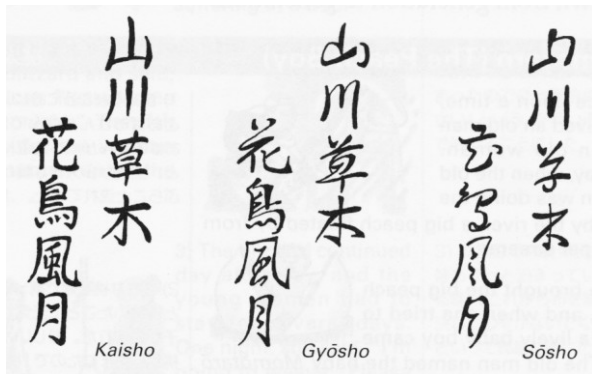 山川草木
花鳥風月
Kaisho
山川草木
花鳥風月
Gyōsho
山川草木
花鳥風月
Sōsho